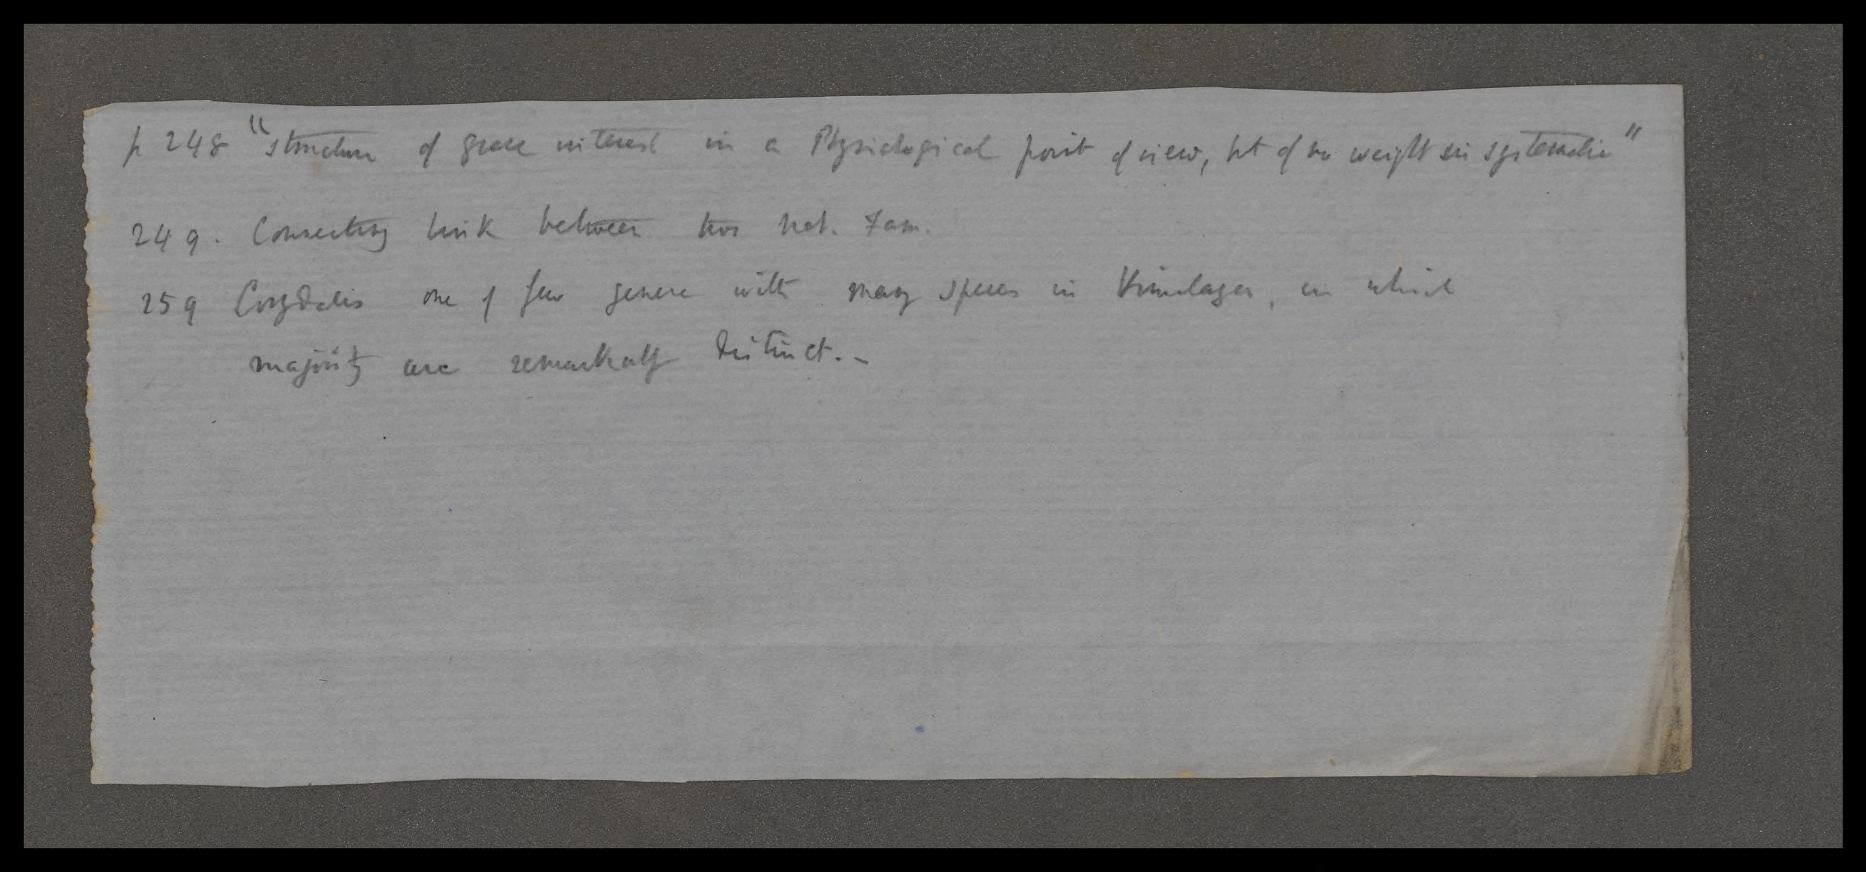 p 248 "structure of great interest in a Physiological point of view, but of no weight in systematic"
249. Connecting link between two Nat. Fam.
259 Corydalis one of few genera with many species in Himalaya, in which
majority are remarkably distinct. —